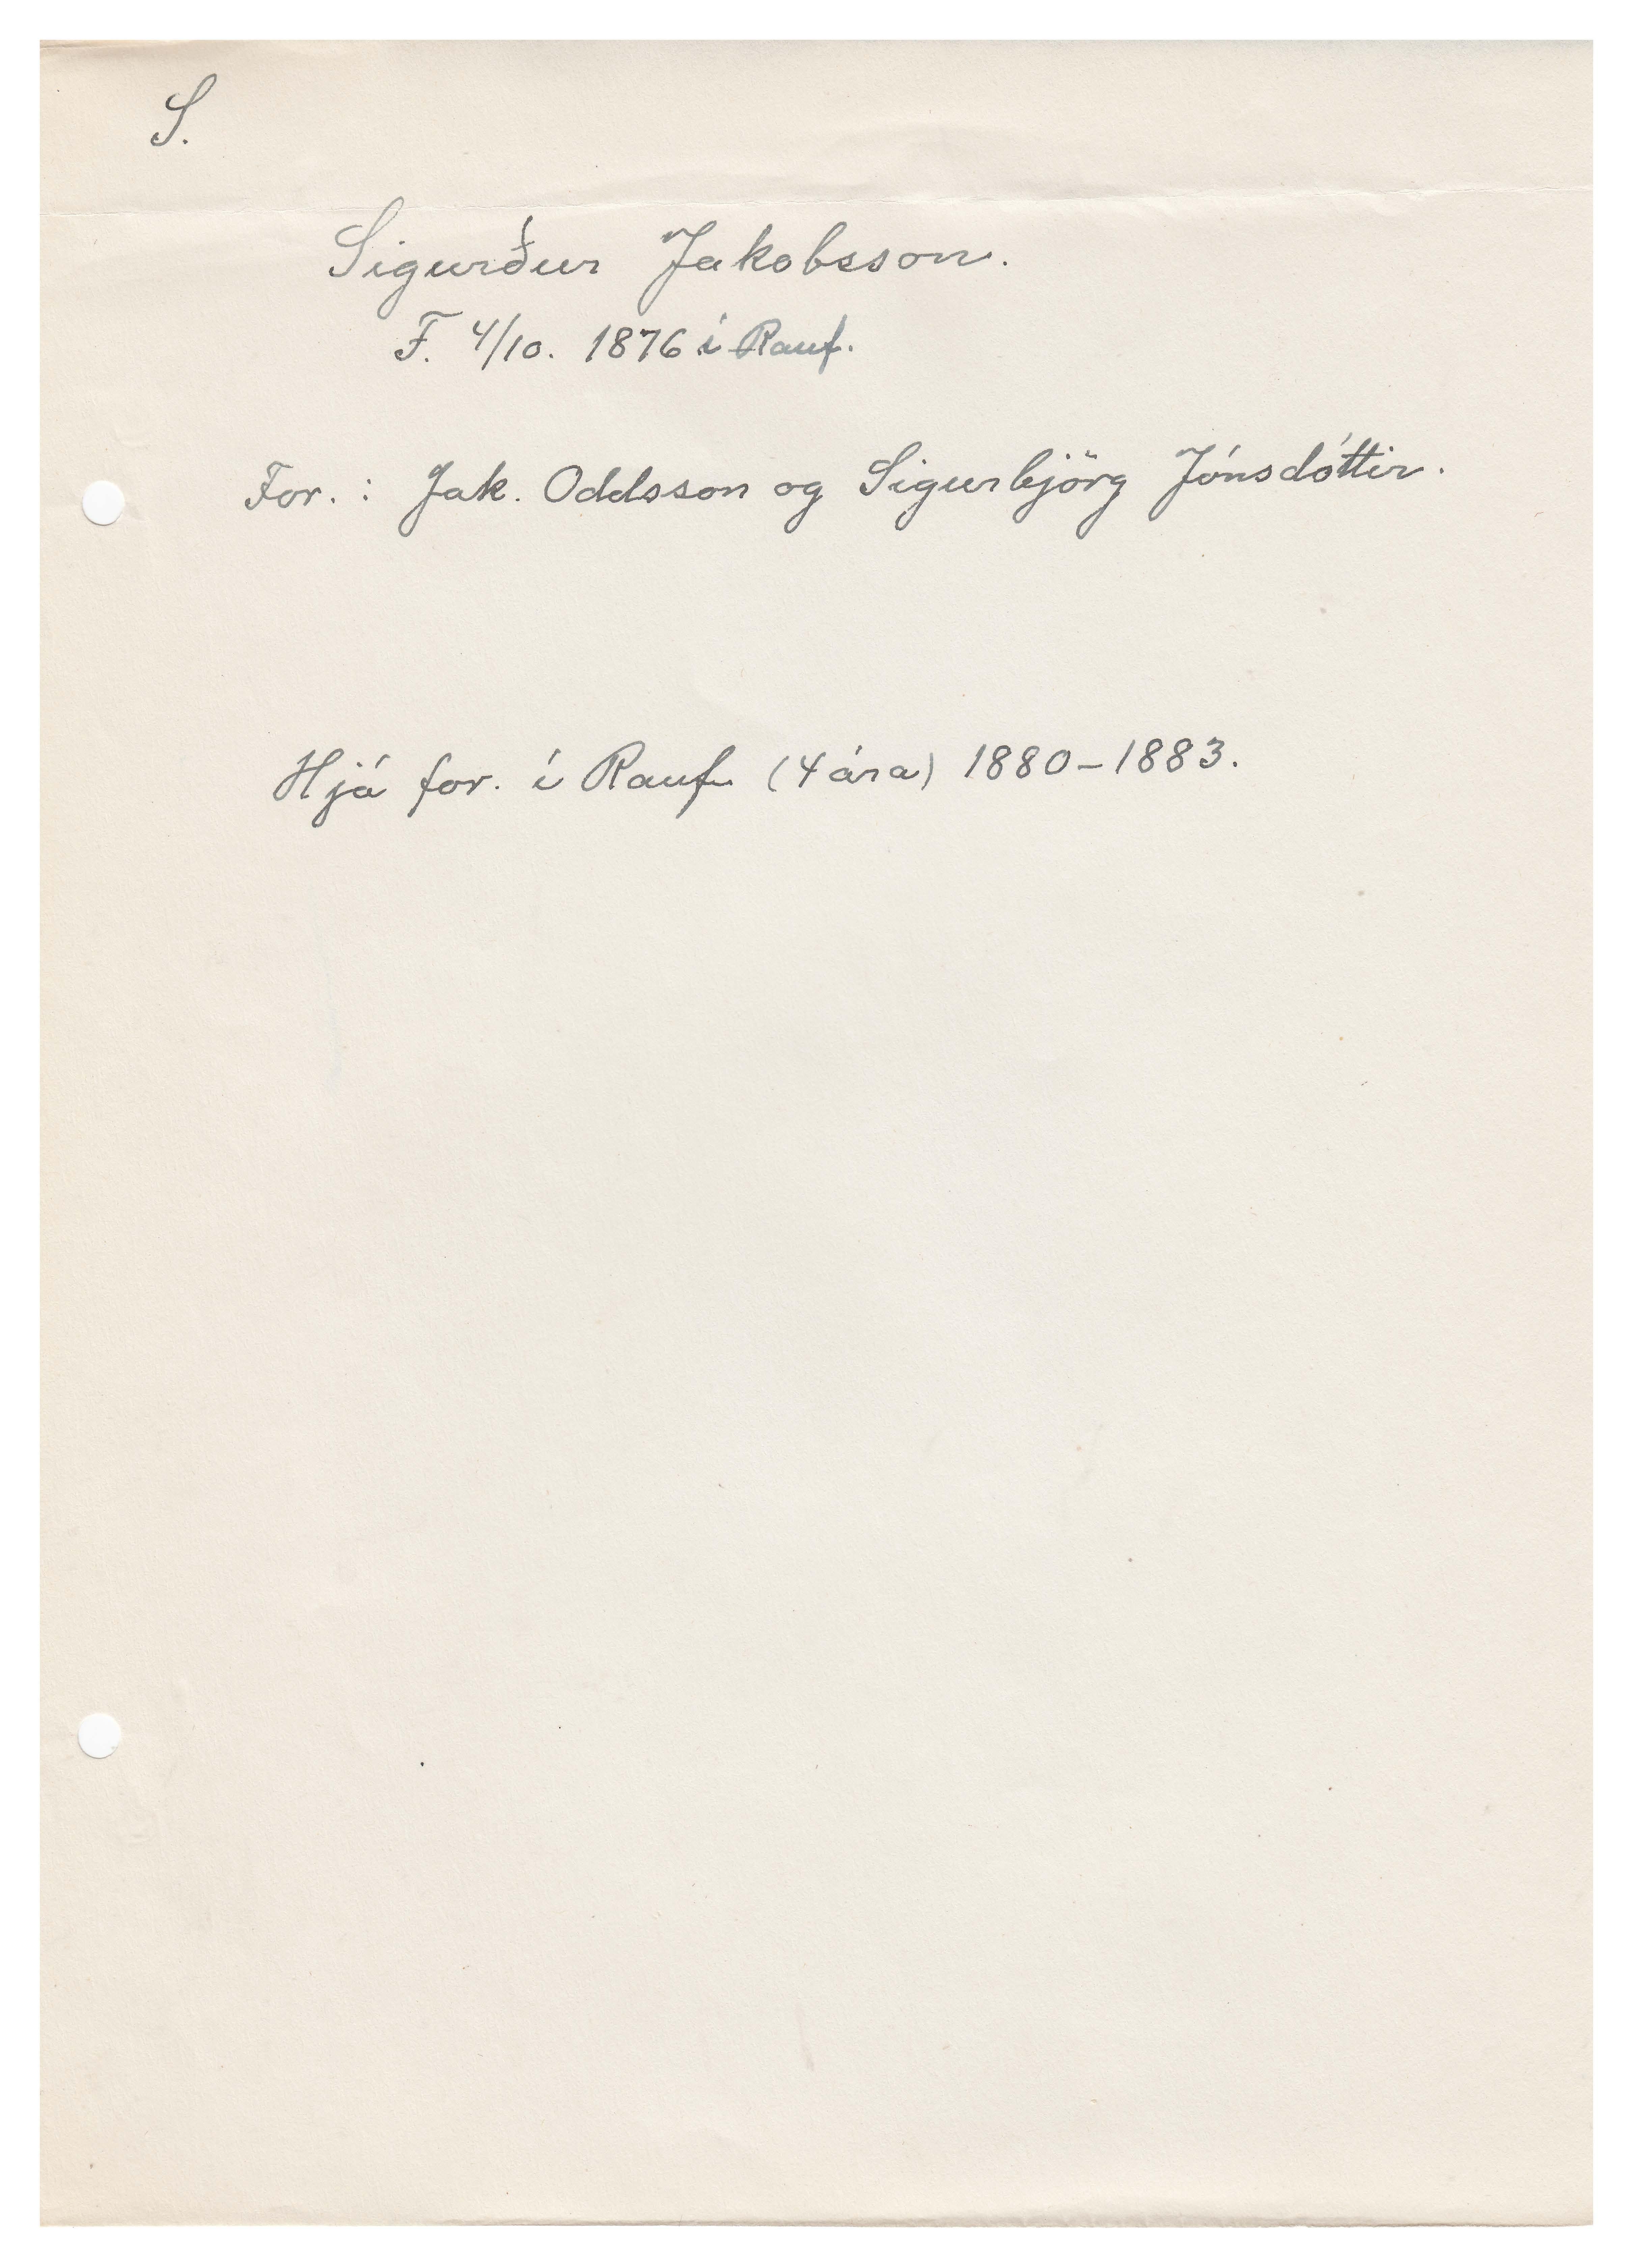 S.
Sigurður Jakobsson.
F. 4/10. 1876 í Rauf.
For.: Jak. Oddsson og Sigurbjörg Jónsdóttir.
Hjá for. í Rauf. (4 ára) 1880-1883.